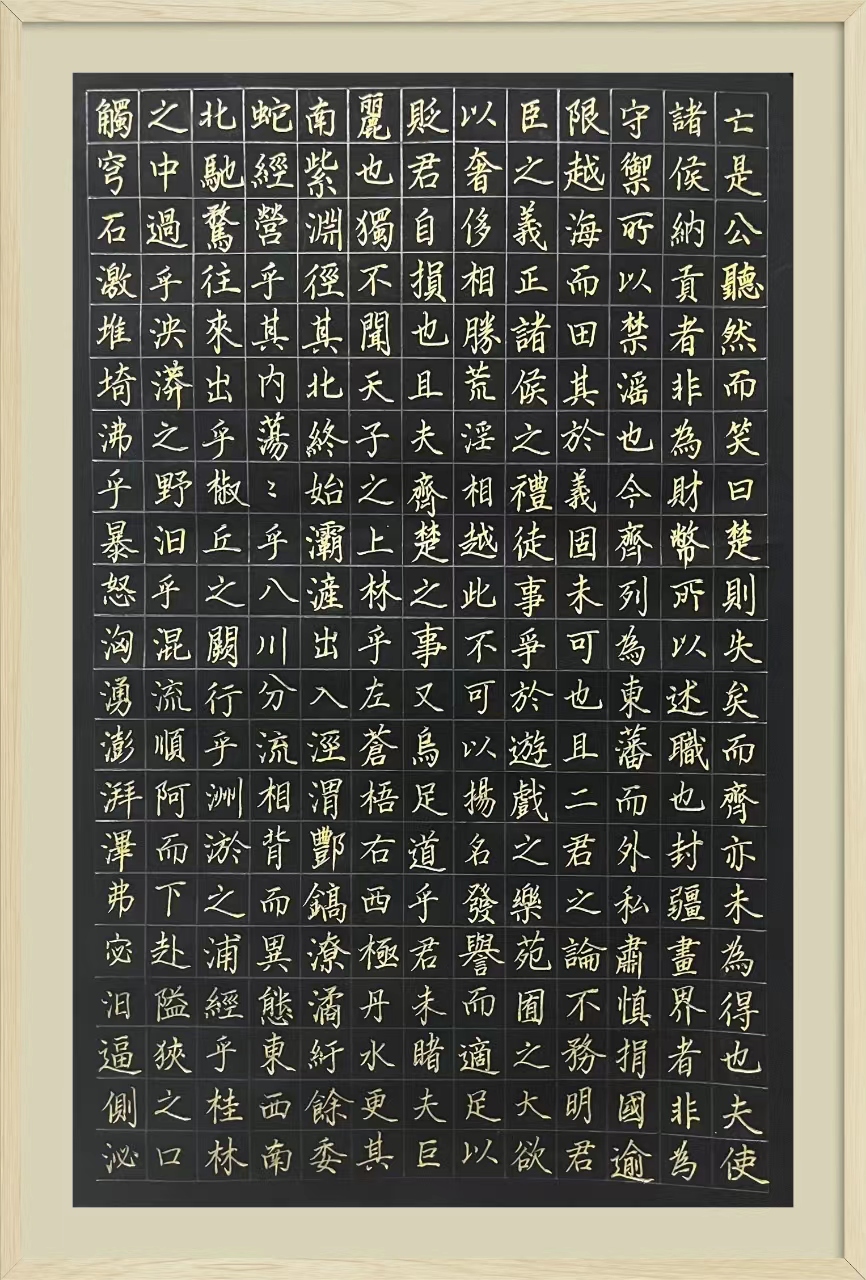 亡是公聽然而笑曰楚則失矣而齊亦未為得也夫使
諸侯納貢者非為財幣所以述職也封疆畫界者非為
守禦所以禁滛也今齊列為東藩而外私肅慎捐國逾
限越海而田其於義固未可也且二君之論不務明君
臣之義正諸侯之禮徒事爭於遊戲之樂苑囿之大欲
以奢侈相勝荒淫相越此不可以揚名發譽而適足以
貶君自損也且夫齊楚之事又烏足道乎君未睹夫巨
麗也獨不聞天子之上林乎左蒼梧右西極丹水更其
南紫淵徑其北終始灞滻出入涇渭酆鎬潦潏紆餘委
蛇經營乎其内蕩〻乎八川分流相背而異態東西南
北馳騖往來出乎椒丘之闕行乎洲淤之浦經乎桂林
之中過乎泱漭之野汨乎混流順阿而下赴隘狹之口
觸穹石激堆埼沸乎暴怒洶湧澎湃滭弗宓汨逼側泌